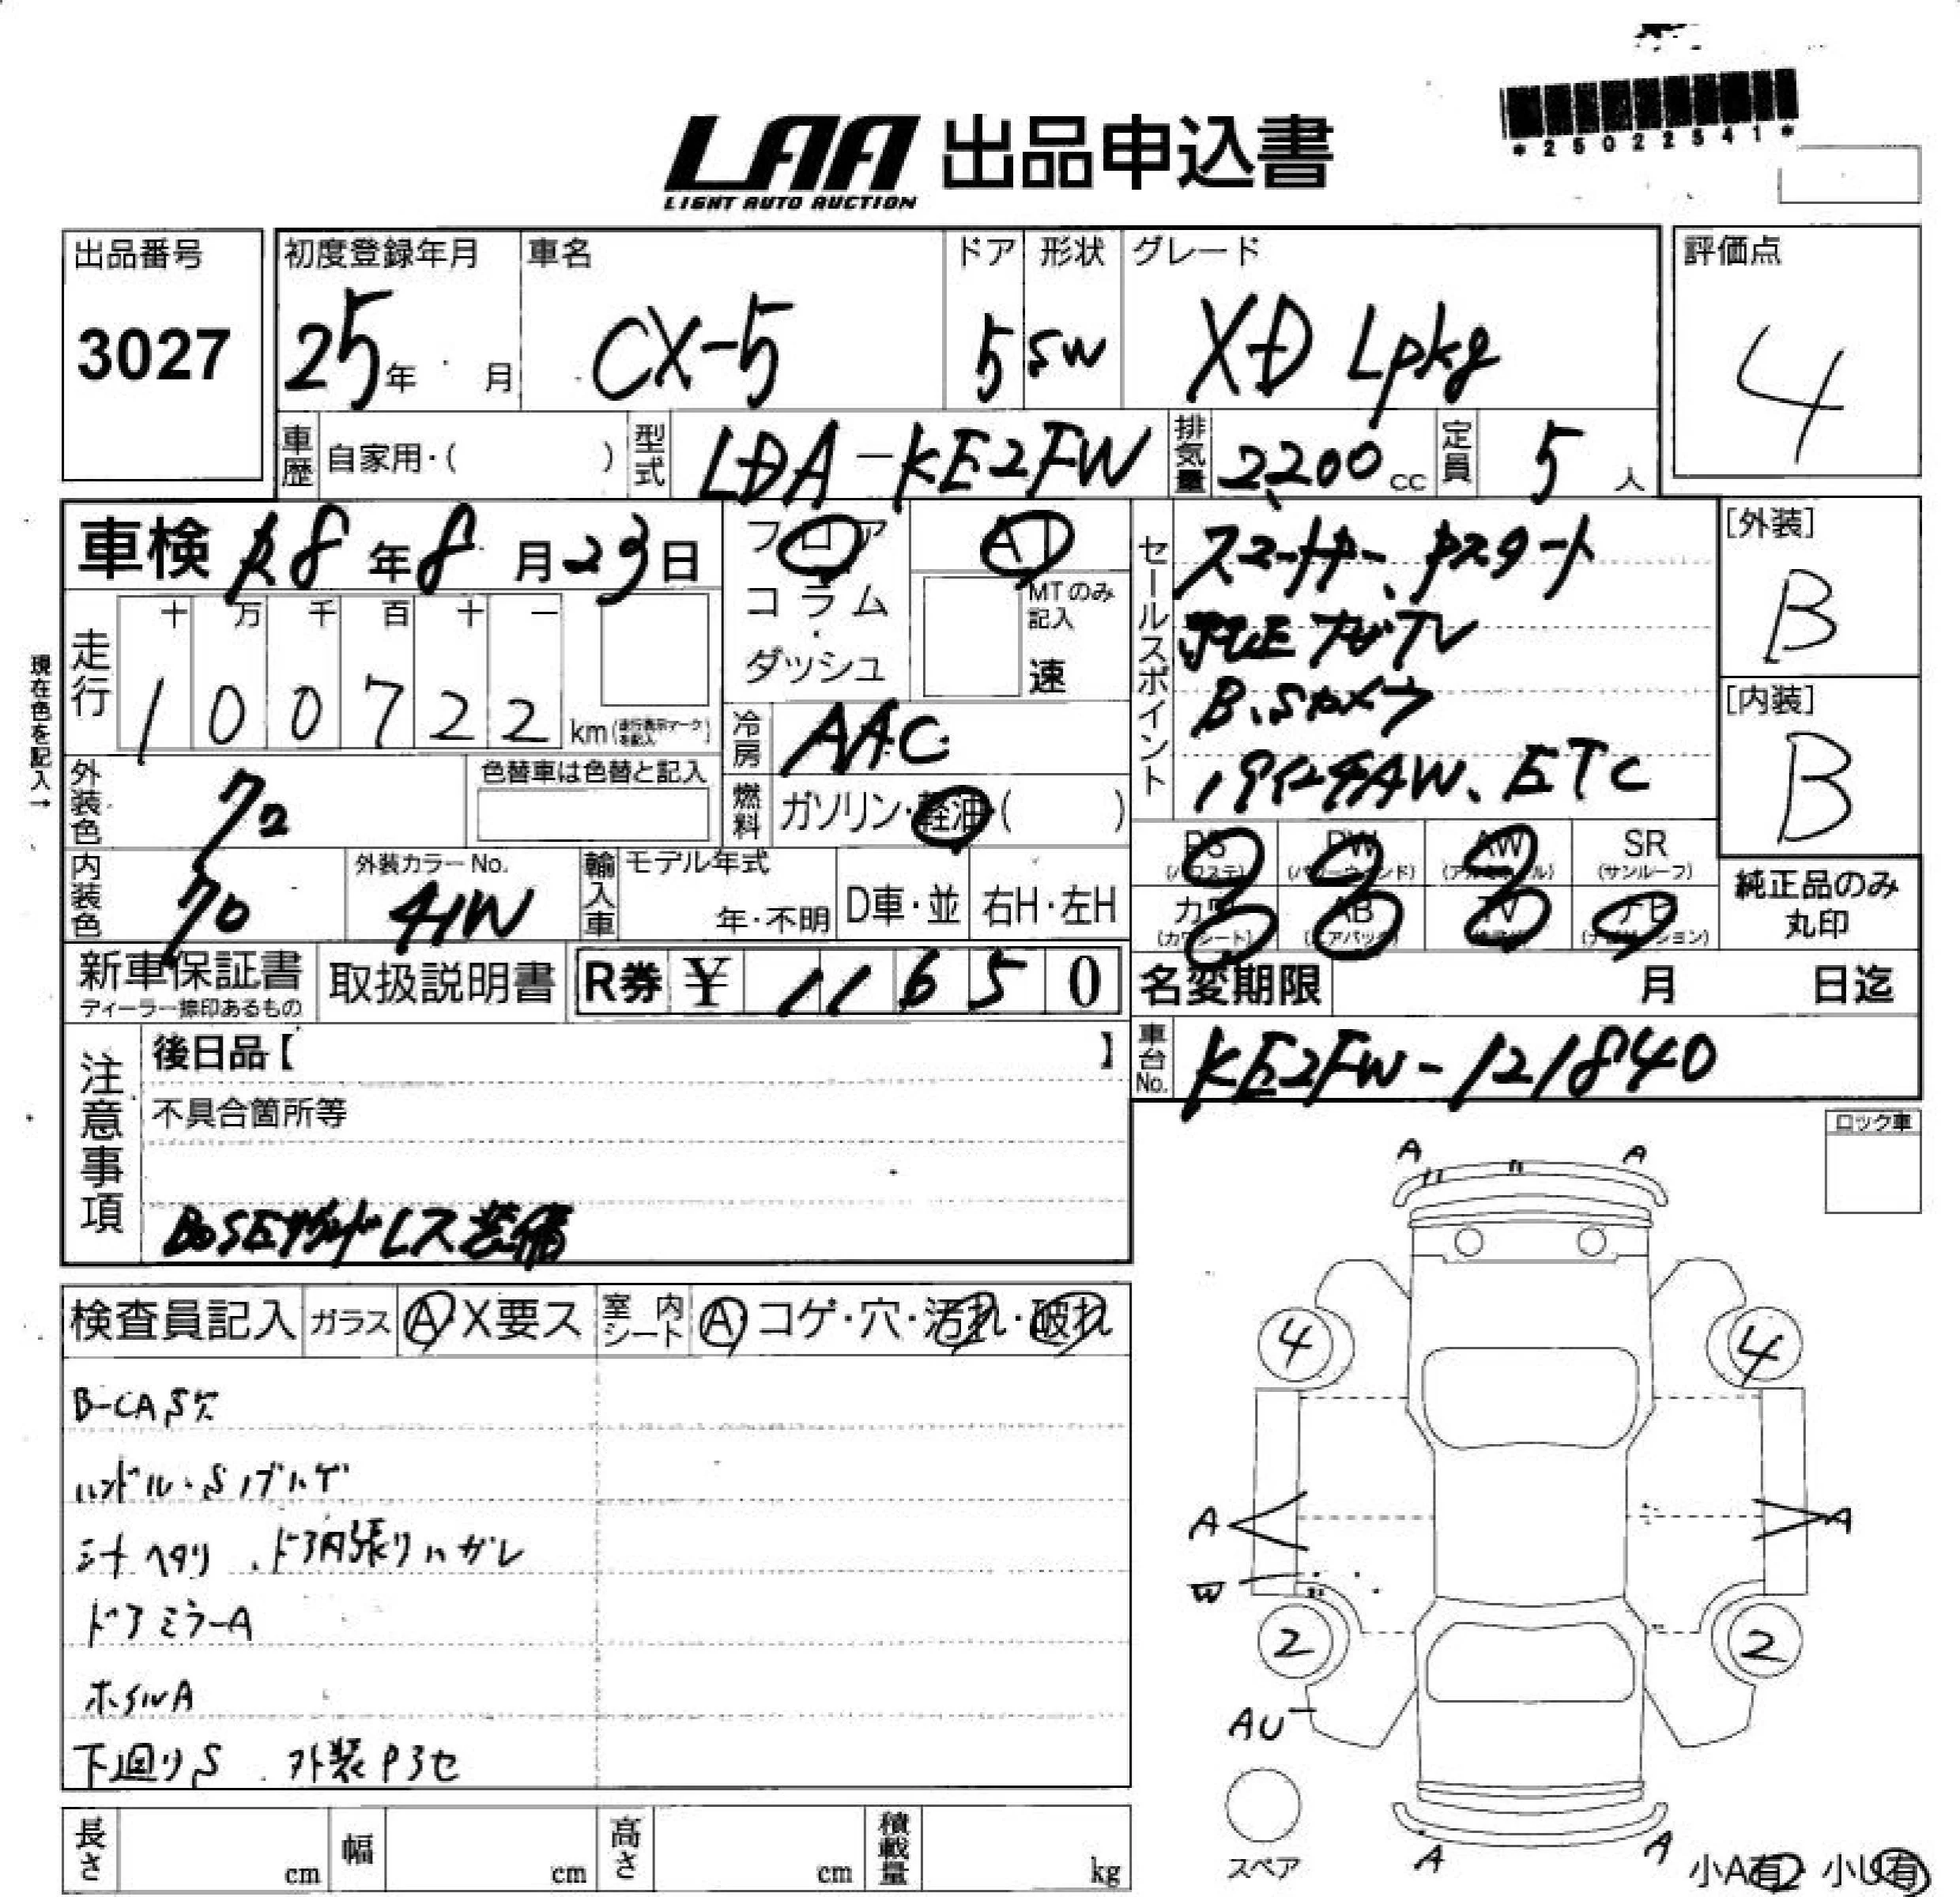 *25022541*
LAA 出品申込書
LIGHT AUTO AUCTION
出品番号 3027
初度登録年月 25年 月
車名 CX-5
ドア 5
形状 SW
グレード XD Lpkg
評価点 4
車歴 自家用・( )
型式 LDA-KE2FW
排気量 2,200cc
定員 5人
車検 R8年8月23日
フロア
コラム
・
ダッシュ
AT
MTのみ記入
速
セールスポイント
スマートキー、Pスタート
ナビTV
B.Sカメラ
19インチAW、ETC
[外装] B
[内装] B
現在色を記入→
走行 十 万 千 百 十 一
1 0 0 7 2 2 km(走行表示マークを記入)
冷房 AAC
外装色
色替車は色替と記入
燃料 ガソリン・軽油・( )
内装色
外装カラーNo. 41W
輸入車 モデル年式 年・不明
D車・並
右H・左H
PS (パワステ)
PW (パワーウィンド)
AW (アルミホイル)
SR (サンルーフ)
カワ (カワシート)
AB (エアバッグ)
TV
ナビ (ナビゲーション)
純正品のみ丸印
新車保証書
ディーラー捺印あるもの
取扱説明書
R券 ¥ 11650
名変期限 月 日迄
車台No. KE2FW-121840
注意事項
後日品【 】
不具合箇所等
BOSEサウンドレス装備
ロック車
検査員記入
ガラス A X要ス
室内シート A コゲ・穴・汚れ・破れ
B-CAS欠
ハンドル・Sノブハゲ
シートヘタリ、ドア内張りハガレ
ドアミラーA
ホイルA
下廻りS、外装P3セ
A A
4 4
A A
W
2 2
AU
スペア
A A
小A有2 小U有
長さ cm
幅 cm
高さ cm
積載量 kg